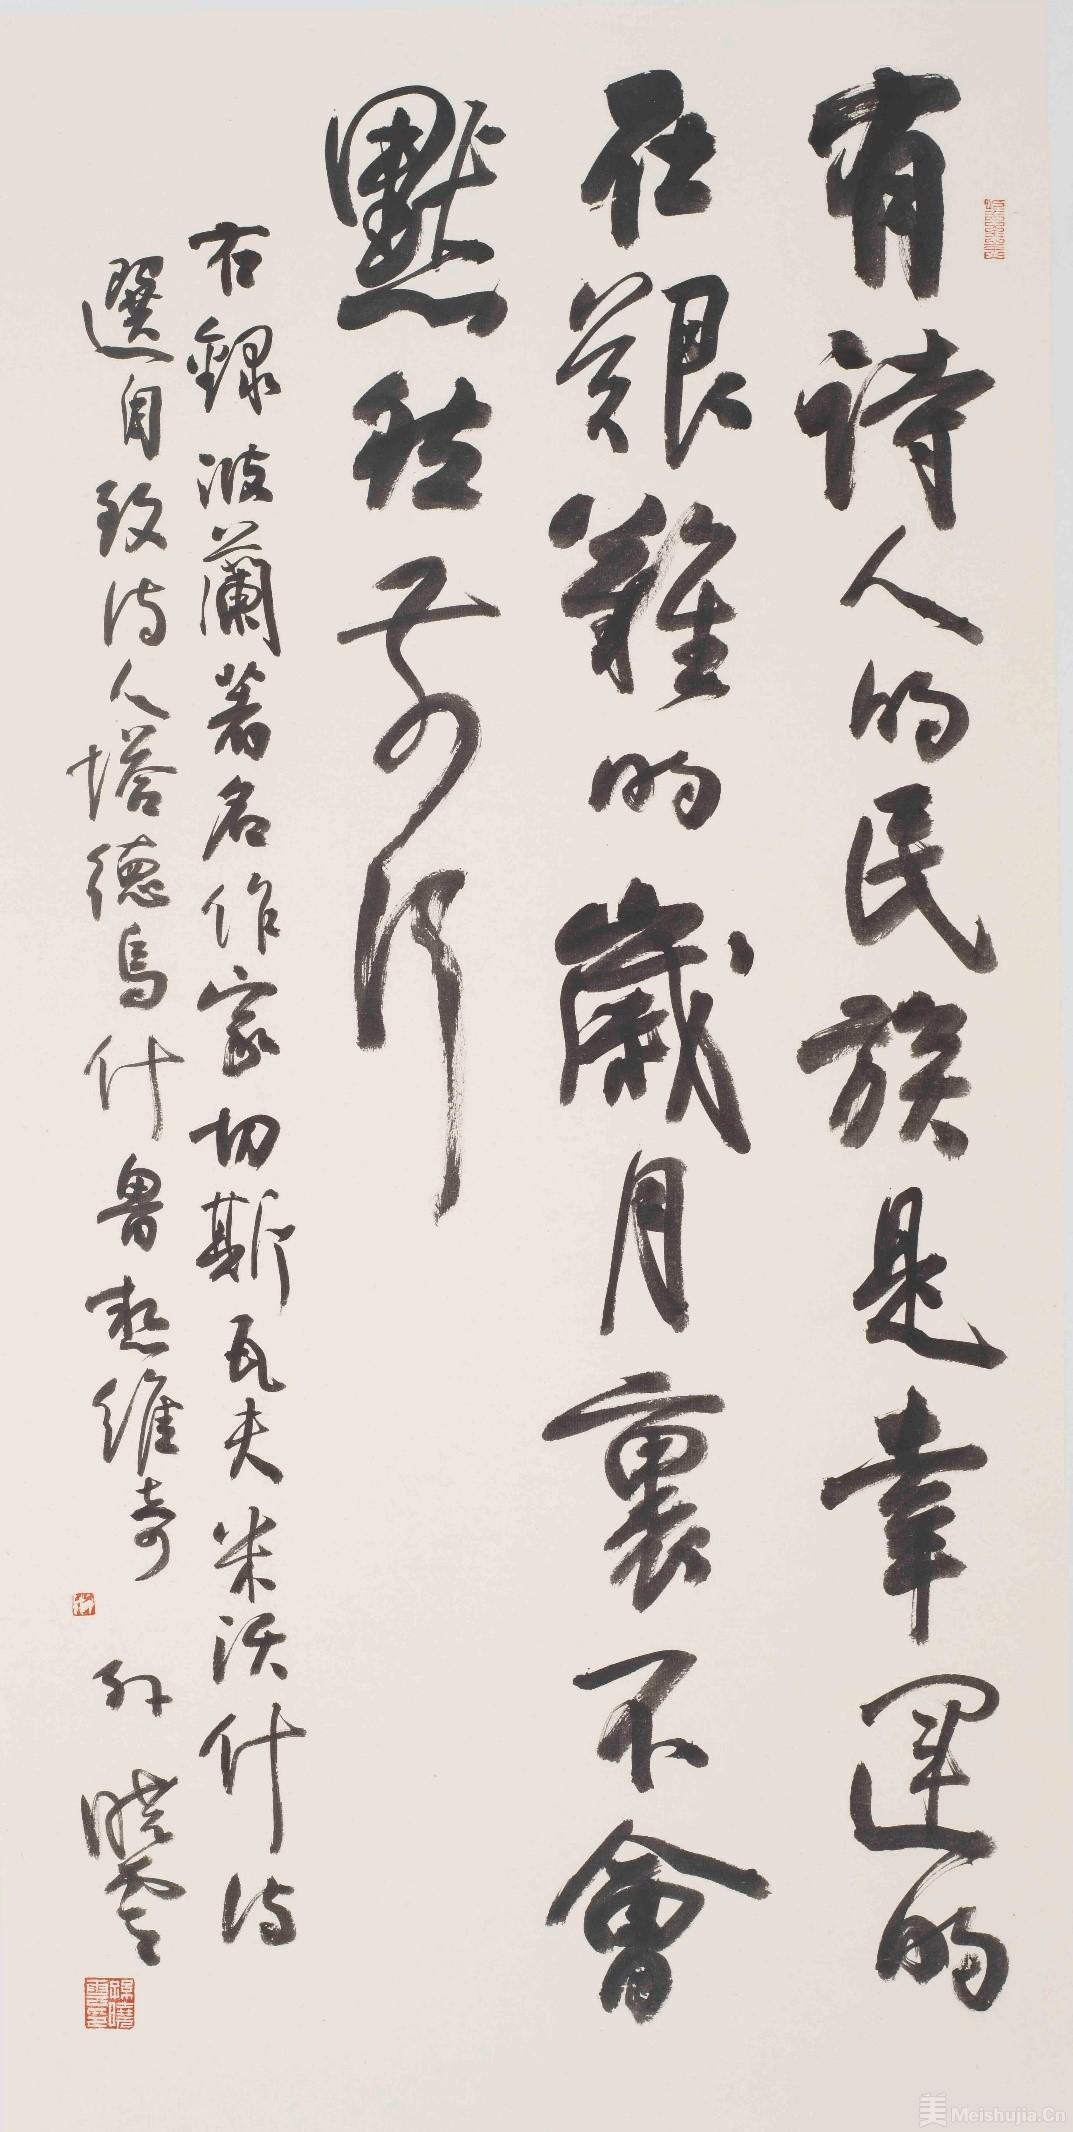 有诗人的民族是幸運的
在艱難的歲月裏不會
默然前行
右錄波蘭著名作家切斯瓦夫米沃什诗
選自致诗人塔德烏什魯热維奇
孙曉雲
孫曉雲
美 Meishujia.Cn